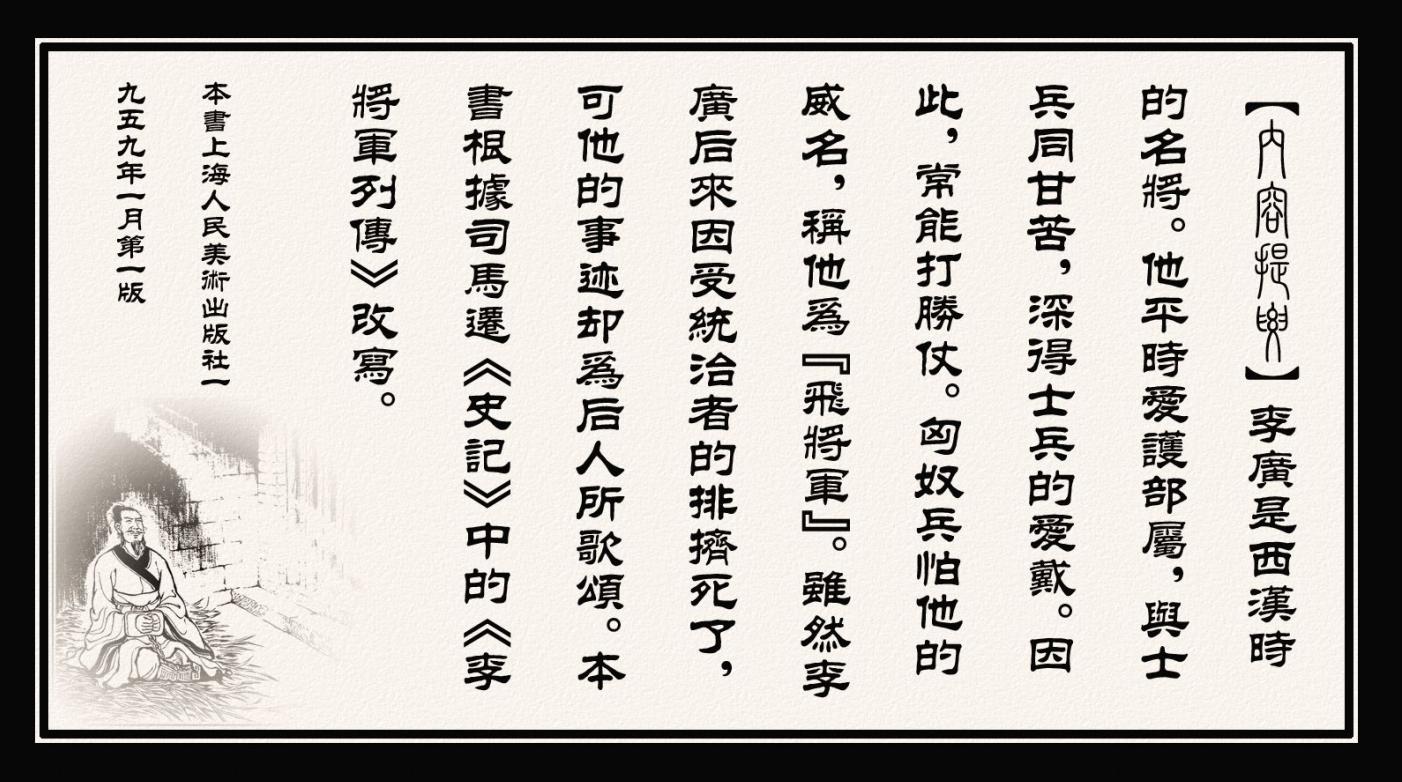 【内容提要】李廣是西漢時
的名將。他平時愛護部屬，與士
兵同甘苦，深得士兵的愛戴。因
此，常能打勝仗。匈奴兵怕他的
威名，稱他爲『飛將軍』。雖然李
廣后來因受統治者的排擠死了，
可他的事迹却爲后人所歌頌。本
書根據司馬遷《史記》中的《李
將軍列傳》改寫。
本書上海人民美術出版社一
九五九年一月第一版